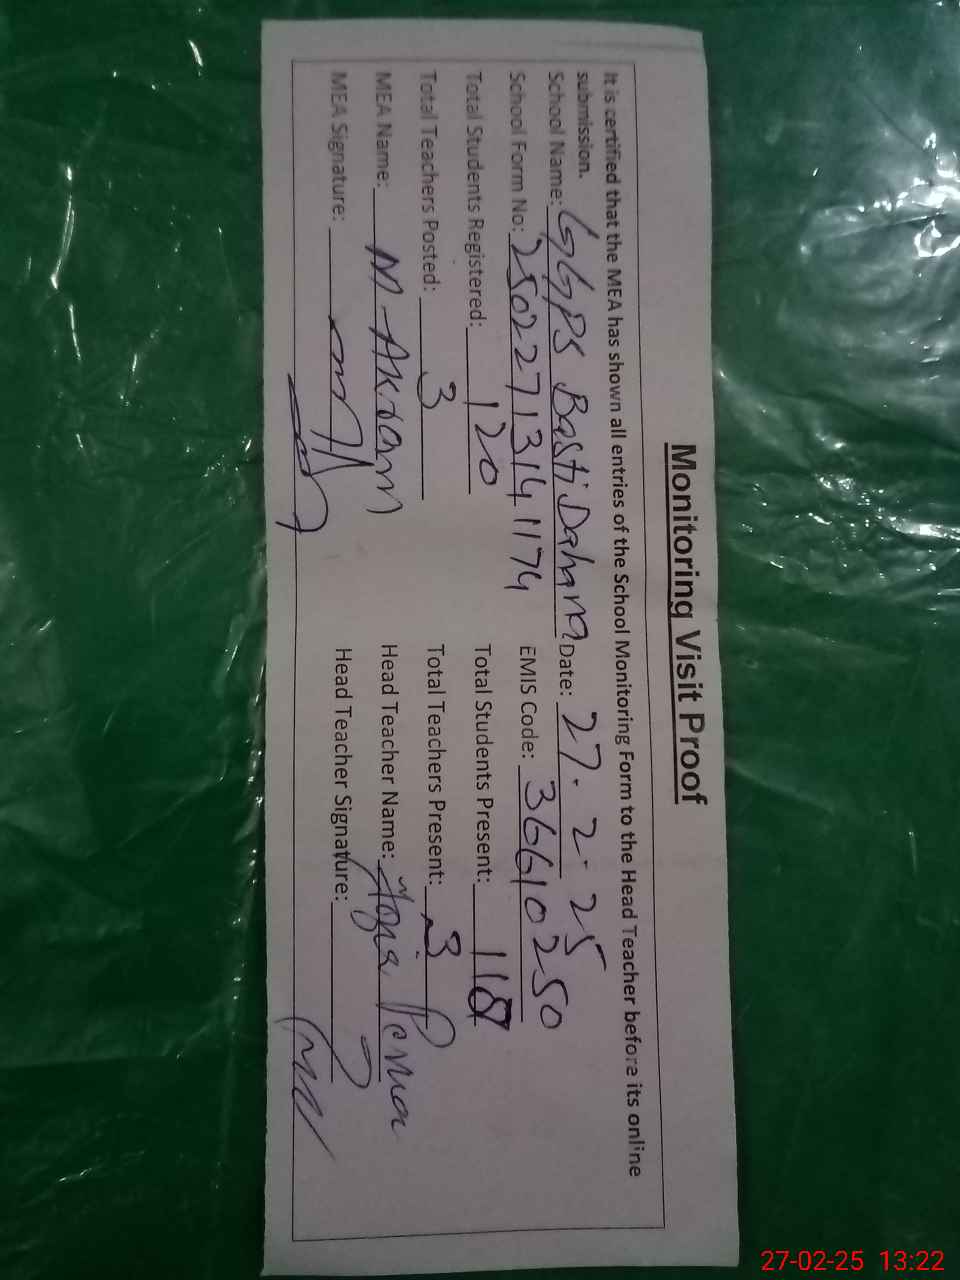 Monitoring Visit Proof
It is certified that the MEA has shown all entries of the School Monitoring Form to the Head Teacher before its online
submission.
School Name: GGPS Basti Dahana Date: 27.2.25
School Form No: 25022713141174 EMIS Code: 36610250
Total Students Registered: 120 Total Students Present: 118
Total Teachers Posted: 3 Total Teachers Present: 3
MEA Name: M-Akram Head Teacher Name:
MEA Signature: Head Teacher Signature:
27-02-25 13:22